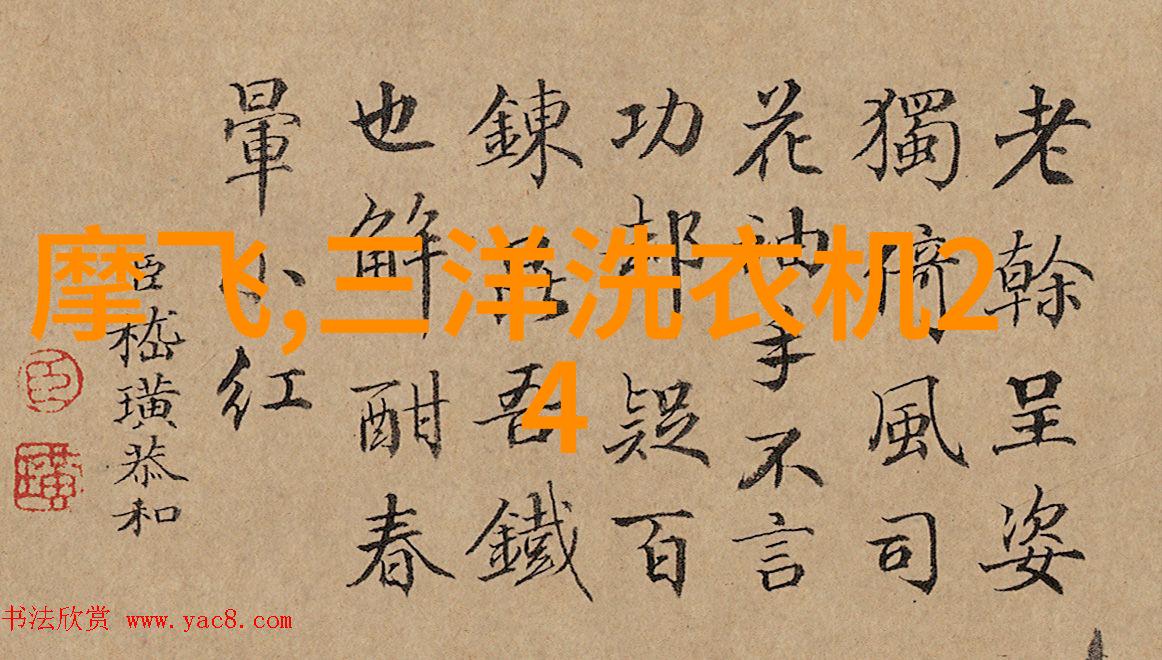 摩飞,三洋洗衣机2
4
老榦呈姿
獨倚風司
花袖手不言
功疑百
鍊吾鐵
也解酣春
暈小紅
臣嵇璜恭和
臣
璜
书法欣赏 www.yac8.com